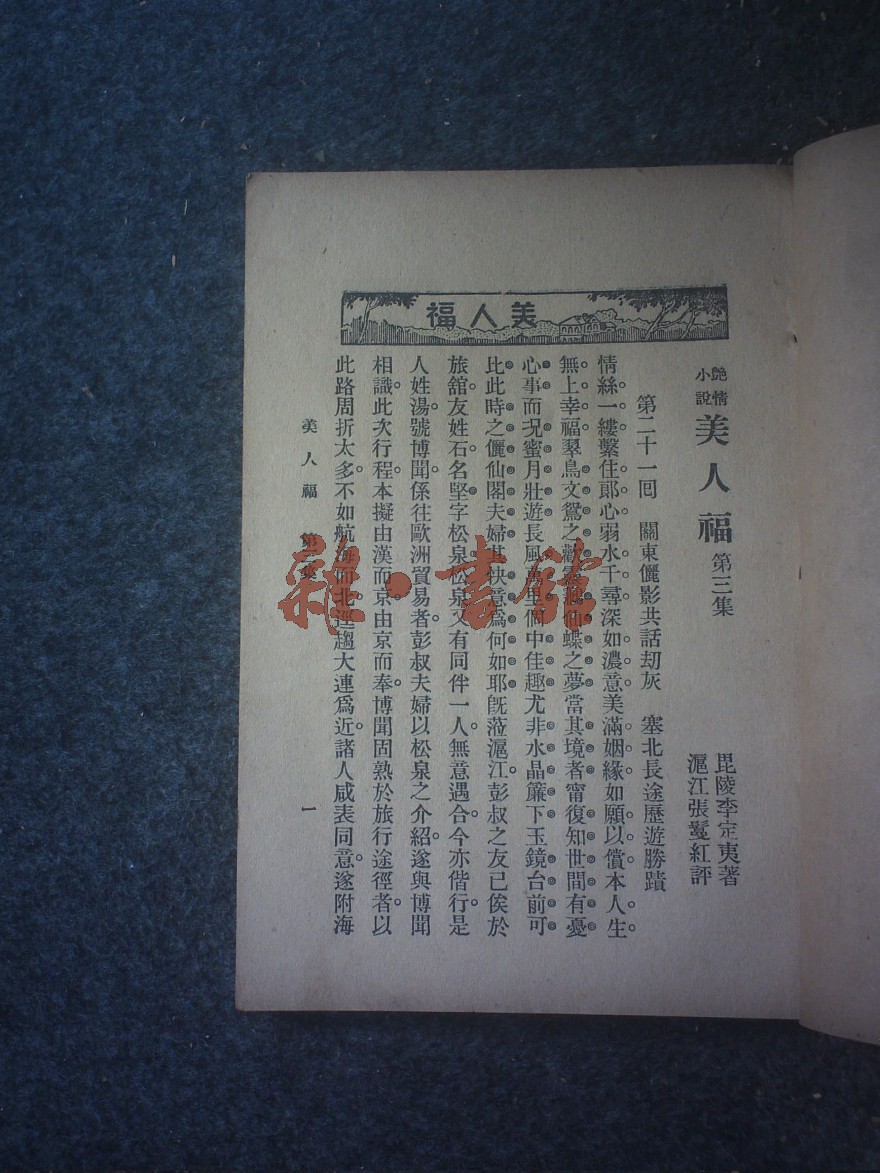 美人福
艷情小說 美人福 第三集
毘陵李定夷著
滬江張鸞紅評
第二十一回 關東儷影共話刧灰 塞北長途歷遊勝蹟
情絲一縷繫住郎心弱水千尋深如濃意美滿姻緣如願以償本人生
無上幸福翠鳥文鴛之歡仙蝶之夢當其境者甯復知世間有憂
心事而况蜜月壯遊長風萬里個中佳趣尤非水晶簾下玉鏡台前可
比此時之儷仙閣夫婦其快意爲何如耶旣蒞滬江彭叔之友已俟於
旅舘友姓石名堅字松泉松泉又有同伴一人無意遇合今亦偕行是
人姓湯號博聞係往歐洲貿易者彭叔夫婦以松泉之介紹遂與博聞
相識此次行程本擬由漢而京由京而奉博聞固熟於旅行途徑者以
此路周折太多不如航海而北逕趨大連爲近諸人咸表同意遂附海
美人福 第集 一
雜·書館